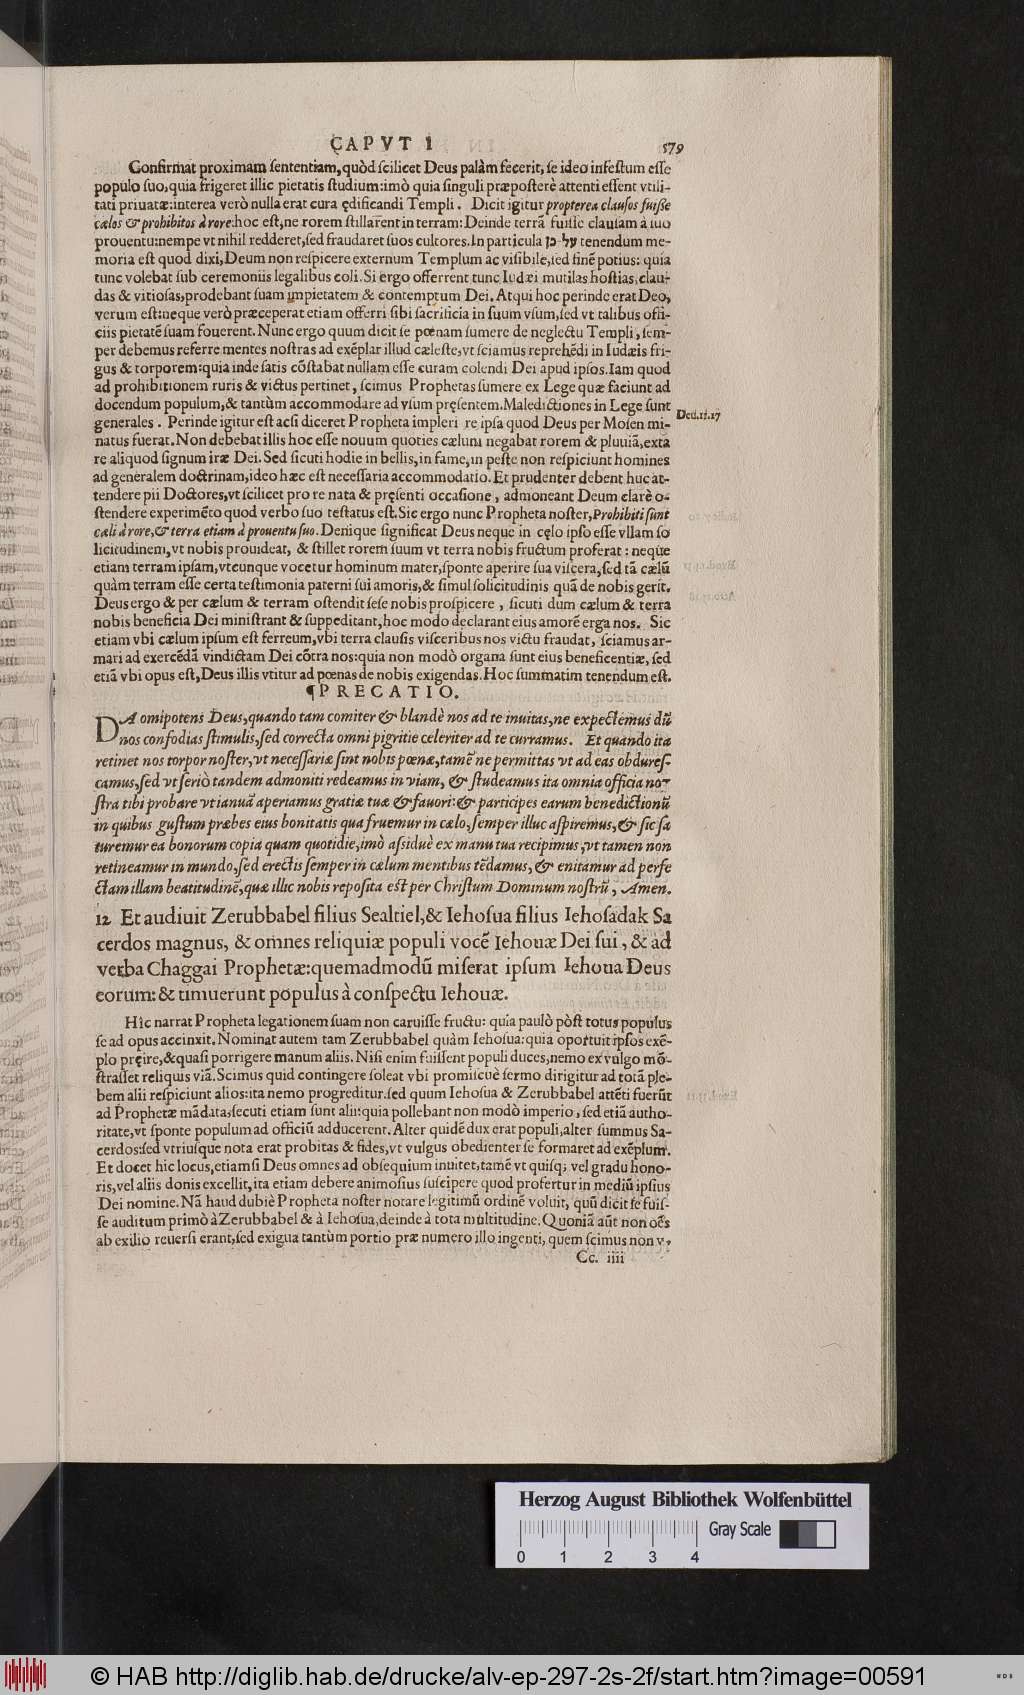 CAPVT I 579
Confirmat proximam ſententiam, quòd ſcilicet Deus palàm fecerit, ſe ideo infeſtum eſſe
populo ſuo, quia frigeret illic pietatis ſtudium: imò quia ſinguli præpoſterè attenti eſſent vtili-
tati priuatæ: interea verò nulla erat cura ędificandi Templi. Dicit igitur propterea clauſos fuiſſe
cælos & prohibitos à rore: hoc eſt, ne rorem ſtillarent in terram: Deinde terrā fuiſſe clauſam à ſuo
prouentu: nempe vt nihil redderet, ſed fraudaret ſuos cultores. In particula על כן tenendum me-
moria eſt quod dixi, Deum non reſpicere externum Templum ac viſibile, ſed finē potius: quia
tunc volebat ſub ceremoniis legalibus coli. Si ergo offerrent tunc Iudæi mutilas hoſtias, clau-
das & vitioſas, prodebant ſuam impietatem & contemptum Dei. Atqui hoc perinde erat Deo,
verum eſt: neque verò præceperat etiam offerri ſibi ſacrificia in ſuum vſum, ſed vt talibus offi-
ciis pietatē ſuam fouerent. Nunc ergo quum dicit ſe pœnam ſumere de neglectu Templi, ſem-
per debemus referre mentes noſtras ad exēplar illud cæleſte, vt ſciamus reprehēdi in Iudæis fri-
gus & torporem: quia inde ſatis cōſtabat nullam eſſe curam colendi Dei apud ipſos. Iam quod
ad prohibitionem ruris & victus pertinet, ſcimus Prophetas ſumere ex Lege quæ faciunt ad
docendum populum, & tantùm accommodare ad vſum pręſentem. Maledictiones in Lege ſunt
Deu. 11. 17
generales. Perinde igitur eſt acſi diceret Propheta impleri re ipſa quod Deus per Moſen mi-
natus fuerat. Non debebat illis hoc eſſe nouum quoties cælum negabat rorem & pluuiā, exta
re aliquod ſignum iræ Dei. Sed ſicuti hodie in bellis, in fame, in peſte non reſpiciunt homines
ad generalem doctrinam, ideo hæc eſt neceſſaria accommodatio. Et prudenter debent huc at-
tendere pii Doctores, vt ſcilicet pro re nata & pręſenti occaſione, admoneant Deum clarè o-
ſtendere experimēto quod verbo ſuo teſtatus eſt. Sic ergo nunc Propheta noſter, Prohibiti ſunt
cæli à rore, & terra etiam à prouentu ſuo. Denique ſignificat Deus neque in cęlo ipſo eſſe vllam ſo
licitudinem, vt nobis prouideat, & ſtillet rorem ſuum vt terra nobis fructum proferat: neque
etiam terram ipſam, vtcunque vocetur hominum mater, ſponte aperire ſua viſcera, ſed tā cælū
quàm terram eſſe certa teſtimonia paterni ſui amoris, & ſimul ſolicitudinis quā de nobis gerit.
Deus ergo & per cælum & terram oſtendit ſeſe nobis proſpicere, ſicuti dum cælum & terra
nobis beneficia Dei miniſtrant & ſuppeditant, hoc modo declarant eius amorē erga nos. Sic
etiam vbi cælum ipſum eſt ferreum, vbi terra clauſis viſceribus nos victu fraudat, ſciamus ar-
mari ad exercēdā vindictam Dei cōtra nos: quia non modò organa ſunt eius beneficentiæ, ſed
etiā vbi opus eſt, Deus illis vtitur ad pœnas de nobis exigendas. Hoc ſummatim tenendum eſt.
¶PRECATIO.
DA omipotens Deus, quando tam comiter & blandè nos ad te inuitas, ne expectemus dū
nos confodias ſtimulis, ſed correcta omni pigritie celeriter ad te curramus. Et quando ita
retinet nos torpor noſter, vt neceſſariæ ſint nobis pœnæ, tamē ne permittas vt ad eas obdureſ-
camus, ſed vt ſeriò tandem admoniti redeamus in viam, & ſtudeamus ita omnia officia no-
ſtra tibi probare vt ianuā aperiamus gratiæ tuæ & fauori: & participes earum benedictionū
in quibus guſtum præbes eius bonitatis qua fruemur in cælo, ſemper illuc aſpiremus, & ſic ſa
turemur ea bonorum copia quam quotidie, imò aſſiduè ex manu tua recipimus, vt tamen non
retineamur in mundo, ſed erectis ſemper in cælum mentibus tēdamus, & enitamur ad perfe
ctam illam beatitudinē, quæ illic nobis repoſita eſt per Chriſtum Dominum noſtrū, Amen.
12 Et audiuit Zerubbabel filius Sealtiel, & Iehoſua filius Iehoſadak Sa
cerdos magnus, & omnes reliquiæ populi vocē Iehouæ Dei ſui, & ad
verba Chaggai Prophetæ: quemadmodū miſerat ipſum Iehoua Deus
eorum: & timuerunt populus à conſpectu Iehouæ.
Hîc narrat Propheta legationem ſuam non caruiſſe fructu: quia paulò pòſt totus populus
ſe ad opus accinxit. Nominat autem tam Zerubbabel quàm Iehoſua: quia oportuit ipſos exē-
plo pręire, & quaſi porrigere manum aliis. Niſi enim fuiſſent populi duces, nemo ex vulgo mō-
ſtraſſet reliquis viā. Scimus quid contingere ſoleat vbi promiſcuè ſermo dirigitur ad totā ple-
bem alii reſpiciunt alios: ita nemo progreditur. ſed quum Iehoſua & Zerubbabel attēti fuerūt
ad Prophetæ mādata, ſecuti etiam ſunt alii: quia pollebant non modò imperio, ſed etiā autho-
ritate, vt ſponte populum ad officiū adducerent. Alter quidē dux erat populi, alter ſummus Sa-
cerdos: ſed vtriuſque nota erat probitas & fides, vt vulgus obedienter ſe formaret ad exēplum.
Et docet hic locus, etiamſi Deus omnes ad obſequium inuitet, tamē vt quiſq; vel gradu hono-
ris, vel aliis donis excellit, ita etiam debere animoſius ſuſcipere quod profertur in mediū ipſius
Dei nomine. Nā haud dubiè Propheta noſter notare legitimū ordinē voluit, quū dicit ſe fuiſ-
ſe auditum primò à Zerubbabel & à Iehoſua, deinde à tota multitudine. Quoniā aūt non oēs
ab exilio reuerſi erant, ſed exigua tantùm portio præ numero illo ingenti, quem ſcimus non v-
Cc. iiii
Herzog August Bibliothek Wolfenbüttel
Gray Scale
0 1 2 3 4
© HAB http://diglib.hab.de/drucke/alv-ep-297-2s-2f/start.htm?image=00591